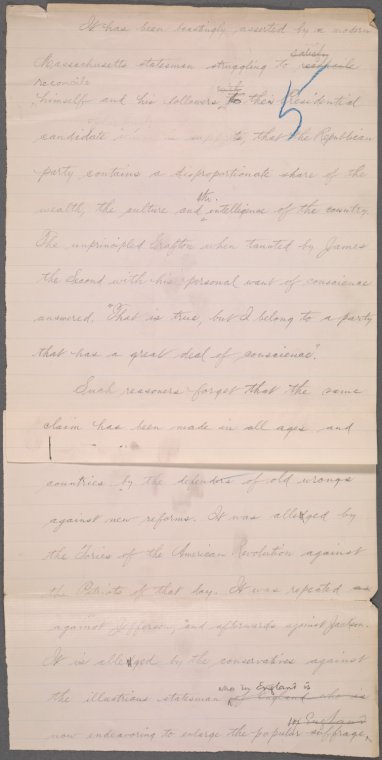 It has been boastingly asserted by a modern
satisfy
Massachusetts statesman struggling to reconcile
reconcile
himself and his followers to their Presidential
5
candidate, that the Republican
party contains a disproportionate share of the
the
wealth, the culture and intelligence of the country.
The unprincipled Grafton when taunted by James
the Second with his personal want of conscience
answered. "That is true, but I belong to a party
that has a great deal of conscience".
Such reasoners forget that the same
claim has been made in all ages and
countries by the defenders of old wrongs
against new reforms. It was alledged by
the Tories of the American Revolution against
the Patriots of that day. It was repeated as
against Jefferson, and afterwards against Jackson.
It is alledged by the conservatives against
who in England is
the illustrious statesman of England who is
in England
now endeavoring to enlarge the popular suffrage,